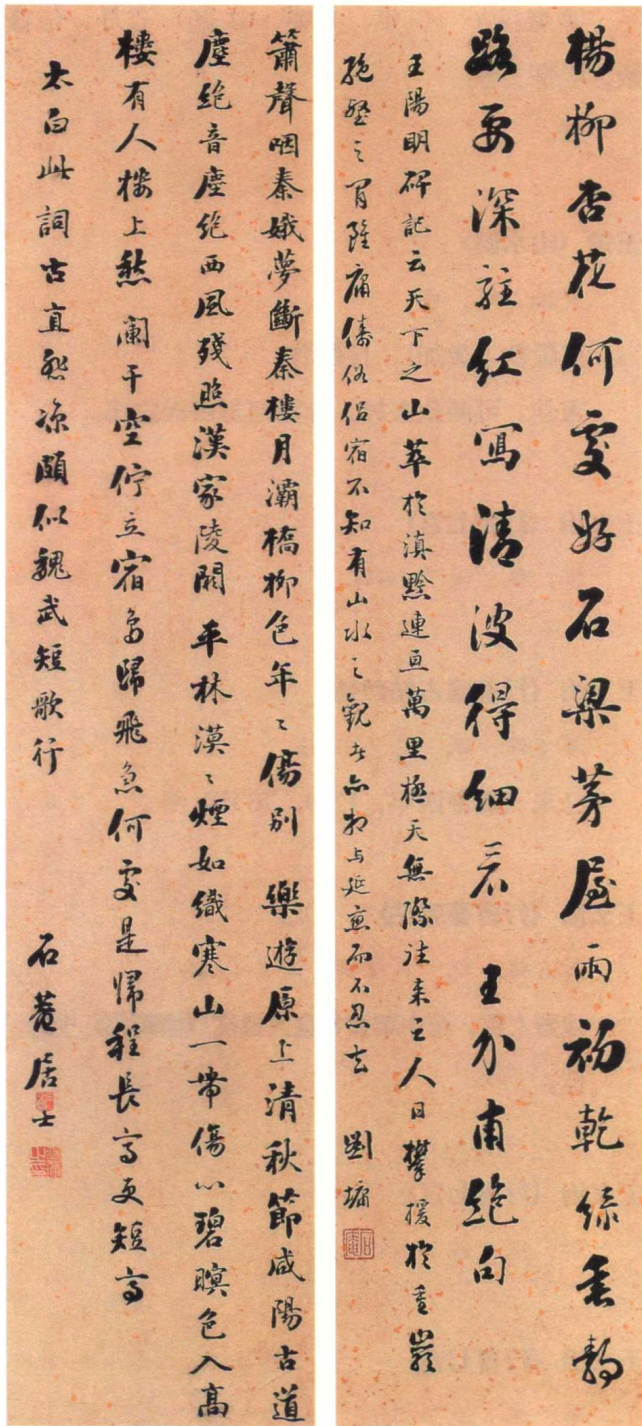 楊柳杏花何處好石梁茅屋雨初乾綠垂靜
路要深駐紅寫清波得細看 王介甫絕句
王陽明碑記云天下之山萃於滇黔連亘萬里極天無際往来之人日攀援於重巖
絕壑之間雖庸儔俗侶宿不知有山水之觀者亦相与延意而不忍去 劉墉
石庵
簫聲咽秦娥夢斷秦樓月灞橋柳色年々傷別 樂遊原上清秋節咸陽古道
塵絕音塵絕西風殘照漢家陵闕 平林漠々煙如織寒山一帶傷心碧暝色入高
樓有人樓上愁 闌干空佇立宿鳥歸飛急何處是歸程長亭更短亭
太白此詞古直悲涼頗似魏武短歌行 石菴居士